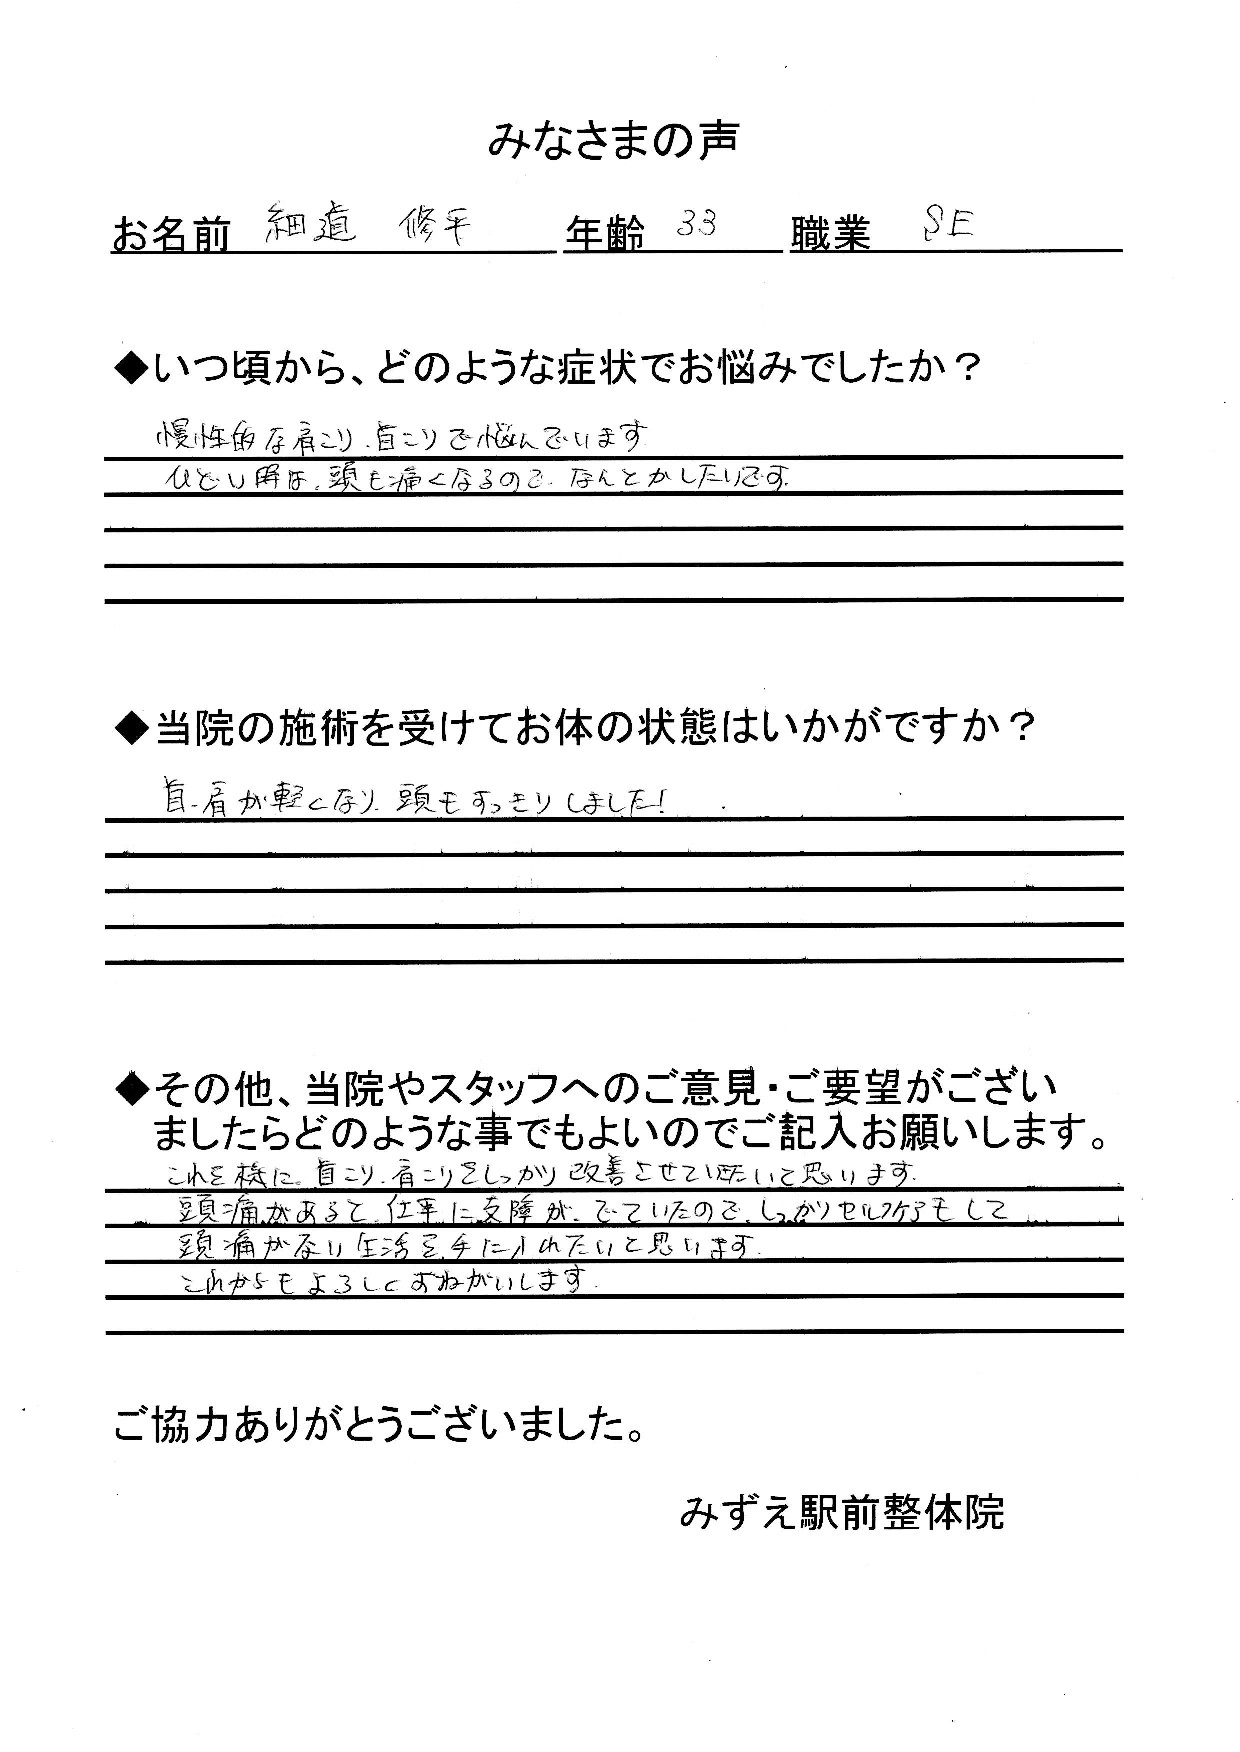 みなさまの声
お名前 細道 修平 年齢 33 職業 SE
◆いつ頃から、どのような症状でお悩みでしたか？
慢性的な肩こり、首こりで悩んでいます
ひどい時は、頭も痛くなるので、なんとかしたいです。
◆当院の施術を受けてお体の状態はいかがですか？
首・肩が軽くなり、頭もすっきりしました！
◆その他、当院やスタッフへのご意見・ご要望がござい
ましたらどのような事でもよいのでご記入お願いします。
これを機に、首こり、肩こりをしっかり改善させていきたいと思います。
頭痛があると、仕事に支障が、でていたので、しっかりセルフケアもして
頭痛がない生活を手に入れたいと思います。
これからもよろしくおねがいします。
ご協力ありがとうございました。
みずえ駅前整体院